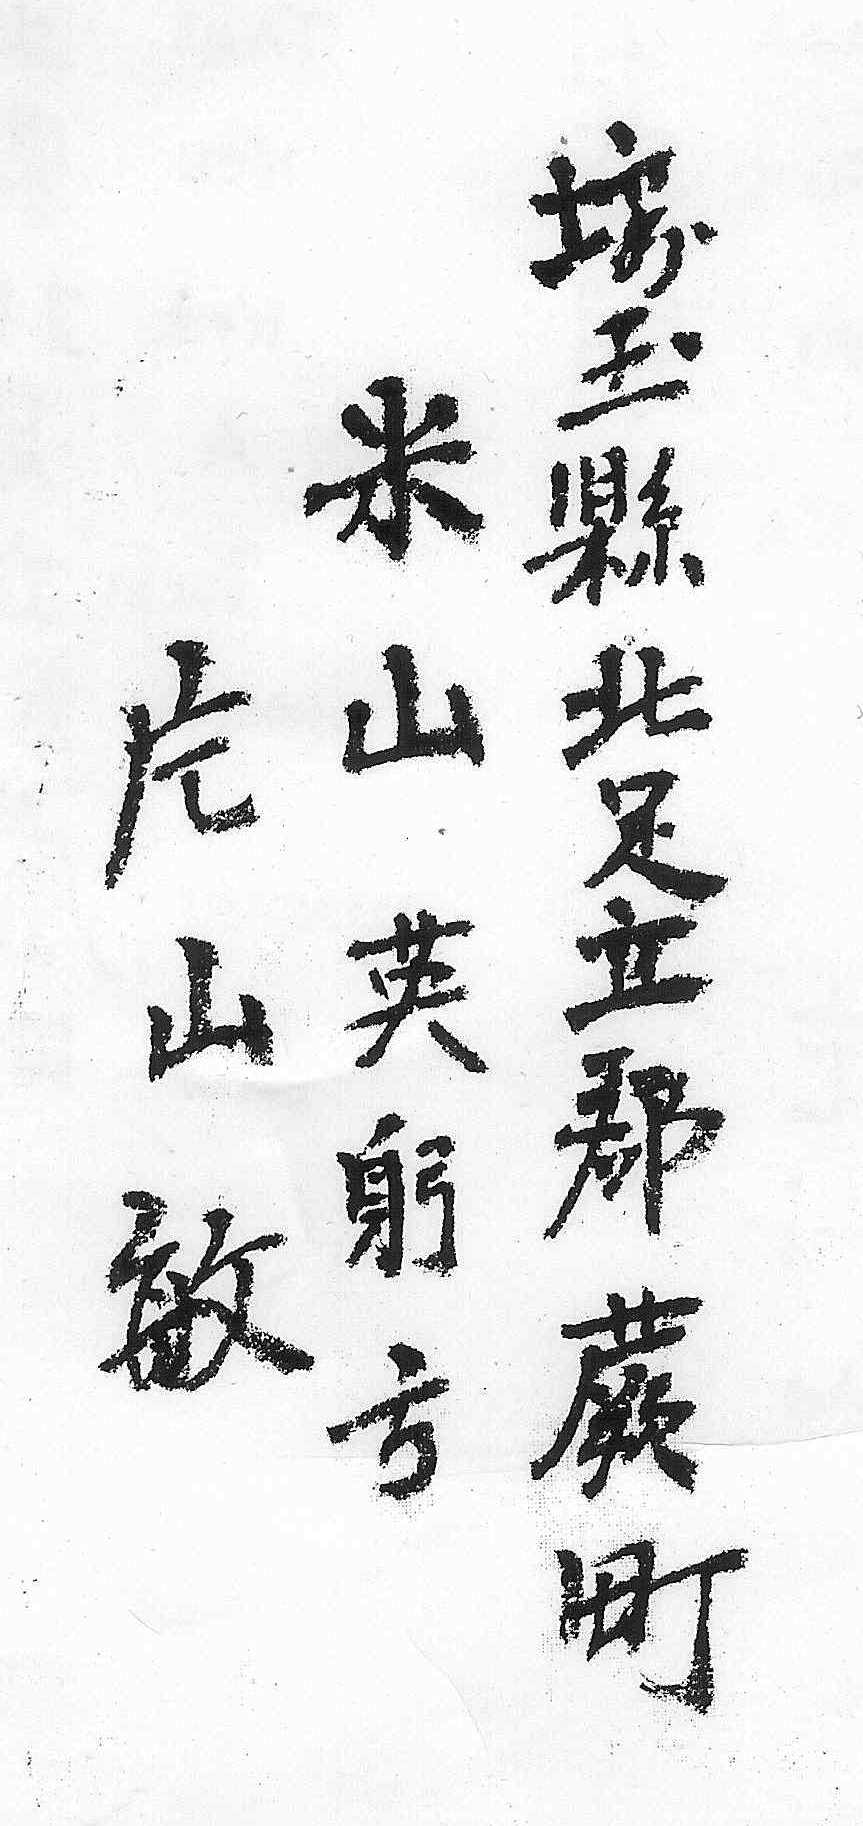 埼玉縣北足立郡蕨町
米山英躬方
片山敏